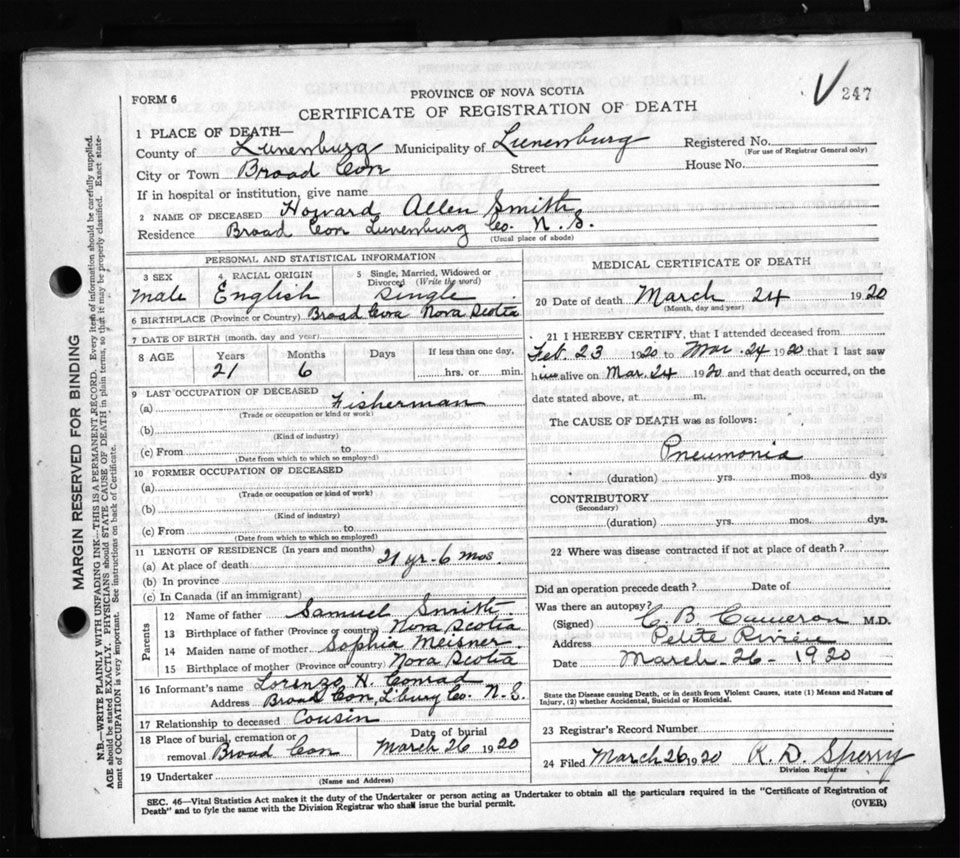 FORM 6
PROVINCE OF NOVA SCOTIA
CERTIFICATE OF REGISTRATION OF DEATH
√ 247
1 PLACE OF DEATH—
County of Lunenburg Municipality of Lunenburg Registered No.
(For use of Registrar General only)
City or Town Broad Cov Street House No.
If in hospital or institution, give name
2 NAME OF DECEASED Howard Allen Smith
Residence Broad Cov Lunenburg Co. N. S.
(Usual place of abode)
PERSONAL AND STATISTICAL INFORMATION
3 SEX 4 RACIAL ORIGIN 5 Single, Married, Widowed or
Divorced (Write the word)
Male English Single
6 BIRTHPLACE (Province or Country) Broad Cove Nova Scotia
7 DATE OF BIRTH (month, day and year)
8 AGE Years Months Days If less than one day,
21 6 hrs. or min.
9 LAST OCCUPATION OF DECEASED
(a) Fisherman
(Trade or occupation or kind or work)
(b)
(Kind of industry)
(c) From to
(Date from which to which so employed)
10 FORMER OCCUPATION OF DECEASED
(a)
(Trade or occupation or kind of work)
(b)
(Kind of industry)
(c) From to
(Date from which to which so employed)
11 LENGTH OF RESIDENCE (In years and months)
(a) At place of death 21 yr- 6 mos
(b) In province
(c) In Canada (if an immigrant)
Parents
12 Name of father Samuel Smith
13 Birthplace of father (Province or country) Nova Scotia
14 Maiden name of mother Sophia Meisner
15 Birthplace of mother (Province or country) Nova Scotia
16 Informant's name Lorenzo H. Conrad
Address Broad Cov, L'burg Co. N. S.
17 Relationship to deceased Cousin
18 Place of burial, cremation or Date of burial
removal Broad Cov March 26 1920
19 Undertaker
(Name and Address)
MEDICAL CERTIFICATE OF DEATH
20 Date of death March 24 1920
(Month, day and year)
21 I HEREBY CERTIFY, that I attended deceased from
Feb. 23 1920 to Mar. 24 1920 that I last saw
him alive on Mar. 24 1920 and that death occurred, on the
date stated above, at m.
The CAUSE OF DEATH was as follows:
Pneumonia
(duration) yrs. mos. dys
CONTRIBUTORY
(Secondary)
(duration) yrs. mos. dys.
22 Where was disease contracted if not at place of death?
Did an operation precede death? Date of
Was there an autopsy?
(Signed) C. B. Cameron M.D.
Address Petite Riviere
Date March- 26- 1920
State the Disease causing Death, or in death from Violent Causes, state (1) Means and Nature of
Injury, (2) whether Accidental, Suicidal or Homicidal.
23 Registrar's Record Number
24 Filed March 26 1920 R. D. Sperry
Division Registrar
SEC. 46—Vital Statistics Act makes it the duty of the Undertaker or person acting as Undertaker to obtain all the particulars required in the "Certificate of Registration of
Death" and to fyle the same with the Division Registrar who shall issue the burial permit. (OVER)
MARGIN RESERVED FOR BINDING
N.B.—WRITE PLAINLY WITH UNFADING INK—THIS IS A PERMANENT RECORD. Every item of information should be carefully supplied.
AGE should be stated EXACTLY. PHYSICIANS should STATE CAUSE OF DEATH in plain terms, so that it may be properly classified. Exact state-
ment of OCCUPATION is very important. See instructions on back of Certificate.